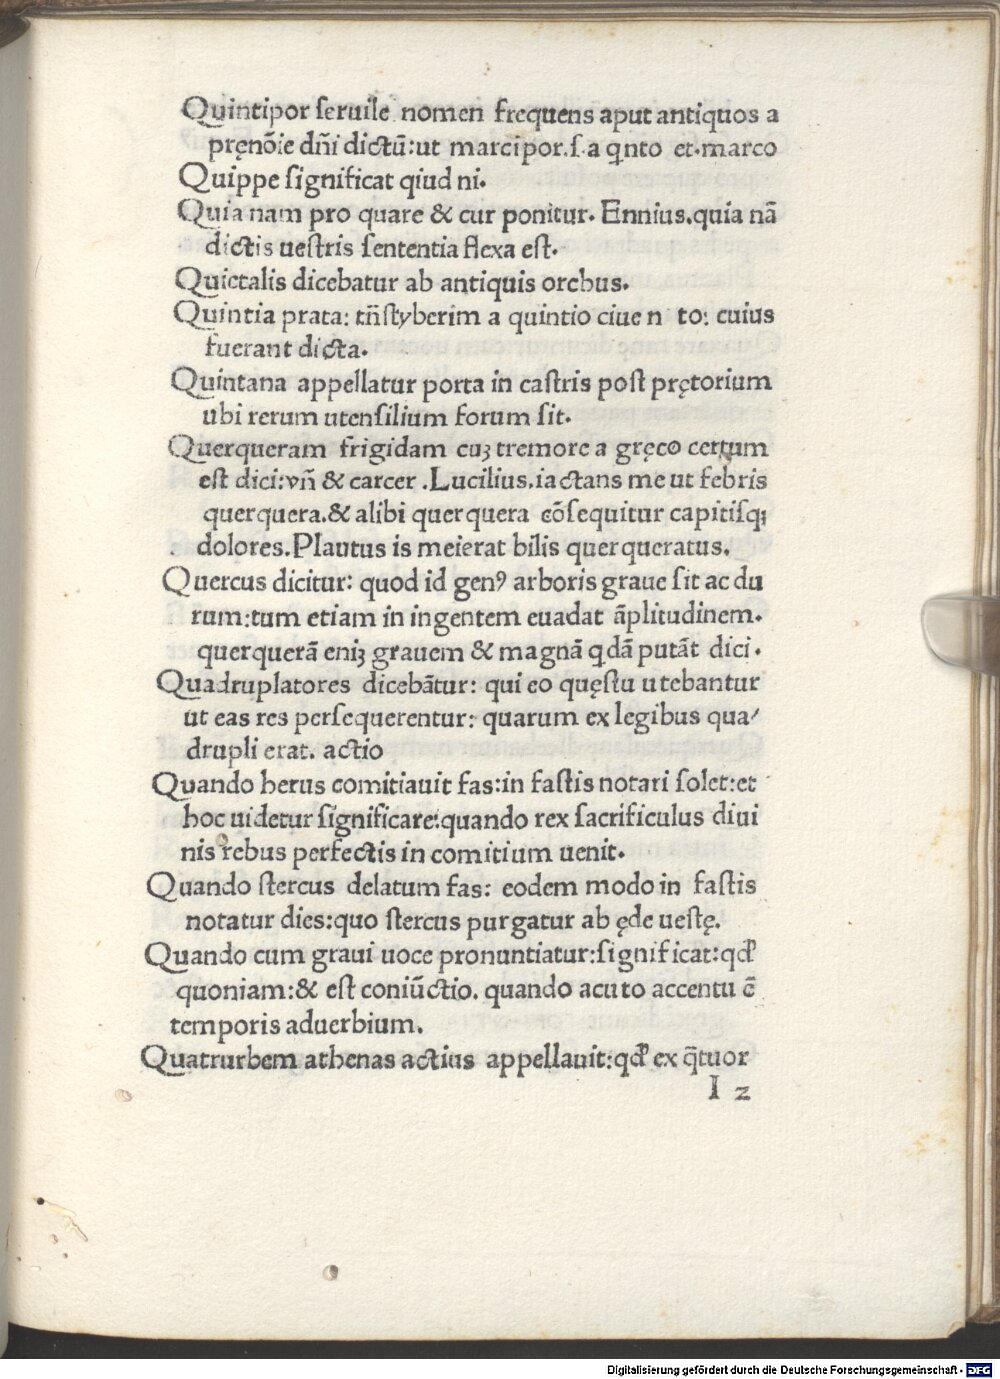 Quintipor ſeruile nomen frequens aput antiquos a
pręnõie dñi dictũ:ut marcipor.ſ.a qnto et.marco
Quippe ſignificat qiud ni.
Quia nam pro quare & cur ponitur. Ennius.quia nã
dictis ueſtris ſententia flexa eſt.
Quietalis dicebatur ab antiquis orcbus.
Quintia prata: tñſtyberim a quintio ciue n to: cuius
fuerant dicta.
Quintana appellatur porta in caſtris poſt prętorium
ubi rerum utenſilium forum ſit.
Querqueram frigidam cuꝫ tremore a gręco certum
eſt dici:vñ & carcer .Lucilius.iactans me ut febris
querquera.& alibi querquera cõſequitur capitiſqꝫ
dolores.Plautus is meierat bilis querqueratus.
Quercus dicitur: quod id genꝰ arboris graue ſit ac du
rum:tum etiam in ingentem euadat ãplitudinem.
querquerã eniꝫ grauem & magnã qdã putãt dici.
Quadruplatores dicebãtur: qui eo quęſtu utebantur
ut eas res perſequerentur: quarum ex legibus qua⸗
drupli erat. actio
Quando herus comitiauit fas:in faſtis notari ſolet:et
hoc uidetur ſignificare:quando rex ſacrificulus diui
nis rebus perfectis in comitium uenit.
Quando ſtercus delatum fas: eodem modo in faſtis
notatur dies:quo ſtercus purgatur ab ęde ueſtę.
Quando cum graui uoce pronuntiatur:ſignificat:qđ
quoniam:& eſt coniũctio. quando acuto accentu ẽ
temporis aduerbium.
Quatrurbem athenas actius appellauit:qđ ex q̃tuor
I z
Digitalisierung gefördert durch die Deutsche Forschungsgemeinschaft - DFG